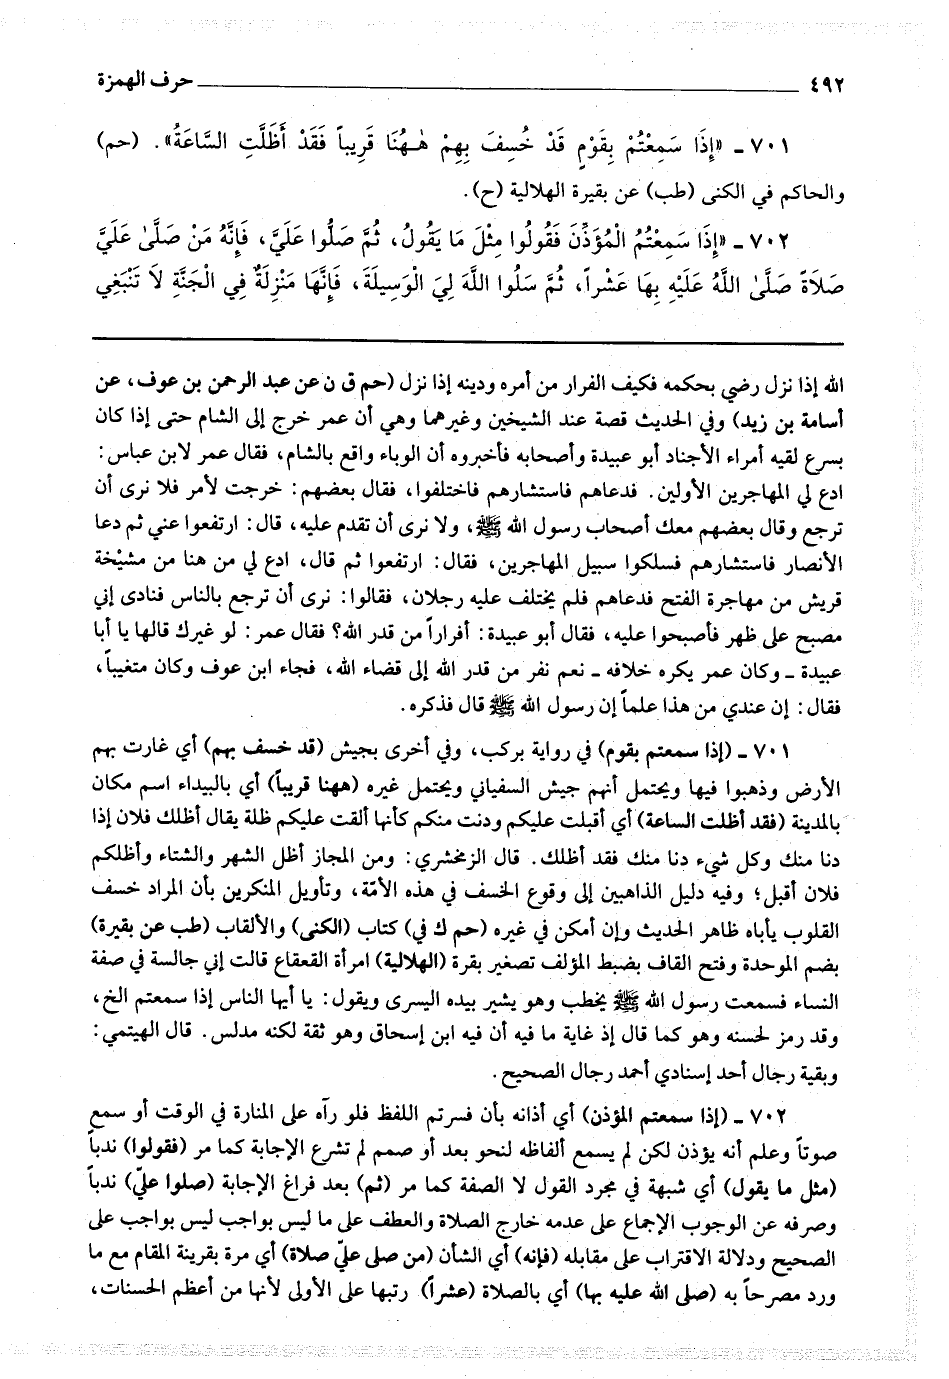 ٤٩٢ حرف الهمزة
٧٠١ ـ «إِذَا سَمِعْتُمْ بِقَوْمٍ قَدْ خُسِفَ بِهِمْ هٰـهُنَا قَرِيباً فَقَدْ أَظَلَّتِ السَّاعَةُ». (حم)
والحاكم في الكنى (طب) عن بقيرة الهلالية (ح).
٧٠٢ ـ «إِذَا سَمِعْتُمُ الْمُؤَذِّنَ فَقُولُوا مِثْلَ مَا يَقُولُ، ثُمَّ صَلُّوا عَلَيَّ، فَإِنَّهُ مَنْ صَلَّىٰ عَلَيَّ
صَلَاةً صَلَّىٰ اللَّهُ عَلَيْهِ بِهَا عَشْراً، ثُمَّ سَلُوا اللَّهَ لِيَ الْوَسِيلَةَ، فَإِنَّهَا مَنْزِلَةٌ فِي الْجَنَّةِ لَا تَنْبَغِي
الله إذا نزل رضي بحكمه فكيف الفرار من أمره ودينه إذا نزل (حم ق ن عن عبد الرحمن بن عوف، عن
أسامة بن زيد) وفي الحديث قصة عند الشيخين وغيرهما وهي أن عمر خرج إلى الشام حتى إذا كان
بسرع لقيه أمراء الأجناد أبو عبيدة وأصحابه فأخبروه أن الوباء واقع بالشام، فقال عمر لابن عباس:
ادع لي المهاجرين الأولين. فدعاهم فاستشارهم فاختلفوا، فقال بعضهم: خرجت لأمر فلا نرى أن
ترجع وقال بعضهم معك أصحاب رسول الله ﷺ، ولا نرى أن تقدم عليه، قال: ارتفعوا عني ثم دعا
الأنصار فاستشارهم فسلكوا سبيل المهاجرين، فقال: ارتفعوا ثم قال، ادع لي من هنا من مشيْخة
قريش من مهاجرة الفتح فدعاهم فلم يختلف عليه رجلان، فقالوا: نرى أن ترجع بالناس فنادى إني
مصبح على ظهر فأصبحوا عليه، فقال أبو عبيدة: أفراراً من قدر الله؟ فقال عمر: لو غيرك قالها يا أبا
عبيدة ـ وكان عمر يكره خلافه ـ نعم نفر من قدر الله إلى قضاء الله، فجاء ابن عوف وكان متغيباً،
فقال: إن عندي من هذا علماً إن رسول الله ﷺ قال فذكره.
٧٠١ ـ (إذا سمعتم بقوم) في رواية بركب، وفي أخرى بجيش (قد خسف بهم) أي غارت بهم
الأرض وذهبوا فيها ويحتمل أنهم جيش السفياني ويحتمل غيره (ههنا قريباً) أي بالبيداء اسم مكان
بالمدينة (فقد أظلت الساعة) أي أقبلت عليكم ودنت منكم كأنها ألقت عليكم ظلة يقال أظلك فلان إذا
دنا منك وكل شيء دنا منك فقد أظلك. قال الزمخشري: ومن المجاز أظل الشهر والشتاء وأظلكم
فلان أقبل؛ وفيه دليل الذاهبين إلى وقوع الخسف في هذه الأمّة، وتأويل المنكرين بأن المراد خسف
القلوب يأباه ظاهر الحديث وإن أمكن في غيره (حم ك في) كتاب (الكنى) والألقاب (طب عن بقيرة)
بضم الموحدة وفتح القاف بضبط المؤلف تصغير بقرة (الهلالية) امرأة القعقاع قالت إني جالسة في صفة
النساء فسمعت رسول الله ﷺ يخطب وهو يشير بيده اليسرى ويقول: يا أيها الناس إذا سمعتم الخ،
وقد رمز لحسنه وهو كما قال إذ غاية ما فيه أن فيه ابن إسحاق وهو ثقة لكنه مدلس. قال الهيتمي:
وبقية رجال أحد إسنادي أحمد رجال الصحيح.
٧٠٢ ـ (إذا سمعتم المؤذن) أي أذانه بأن فسرتم اللفظ فلو رآه على المنارة في الوقت أو سمع
صوتاً وعلم أنه يؤذن لكن لم يسمع ألفاظه لنحو بعد أو صمم لم تشرع الإجابة كما مر (فقولوا) ندباً
(مثل ما يقول) أي شبهة في مجرد القول لا الصفة كما مر (ثم) بعد فراغ الإجابة (صلوا عليّ) ندباً
وصرفه عن الوجوب الإجماع على عدمه خارج الصلاة والعطف على ما ليس بواجب ليس بواجب على
الصحيح ودلالة الاقتراب على مقابله (فإنه) أي الشأن (من صلى عليّ صلاة) أي مرة بقرينة المقام مع ما
ورد مصرحاً به (صلى الله عليه بها) أي بالصلاة (عشراً) رتبها على الأولى لأنها من أعظم الحسنات،